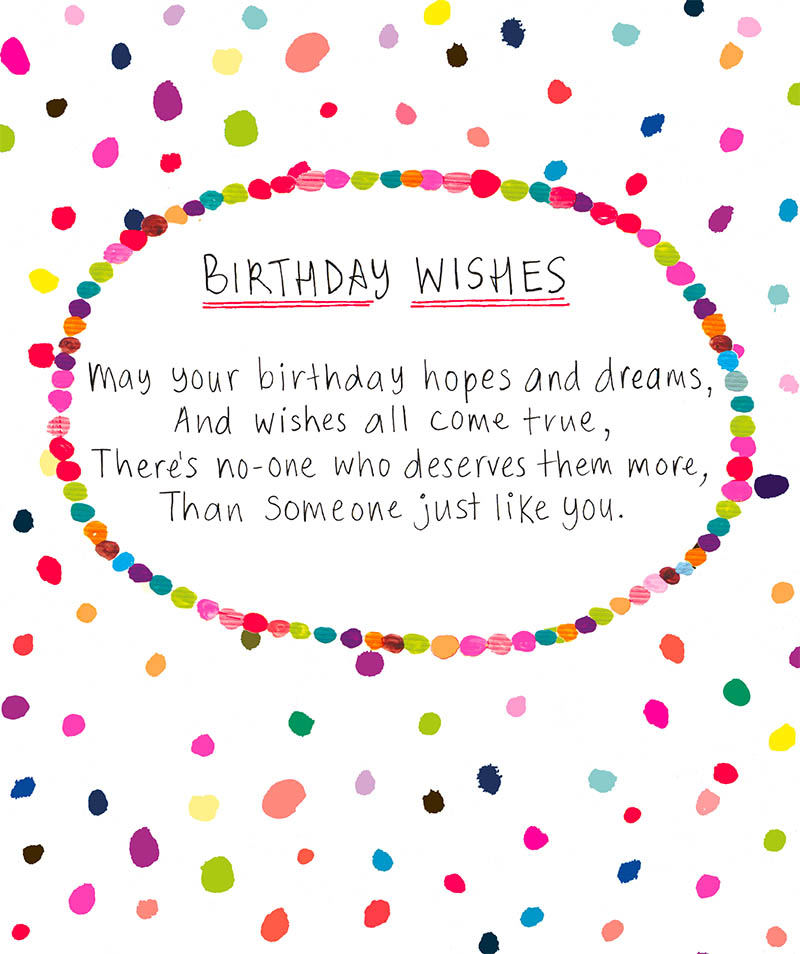 BIRTHDAY WISHES
May your birthday hopes and dreams,
And wishes all come true,
There's no-one who deserves them more,
Than someone just like you.